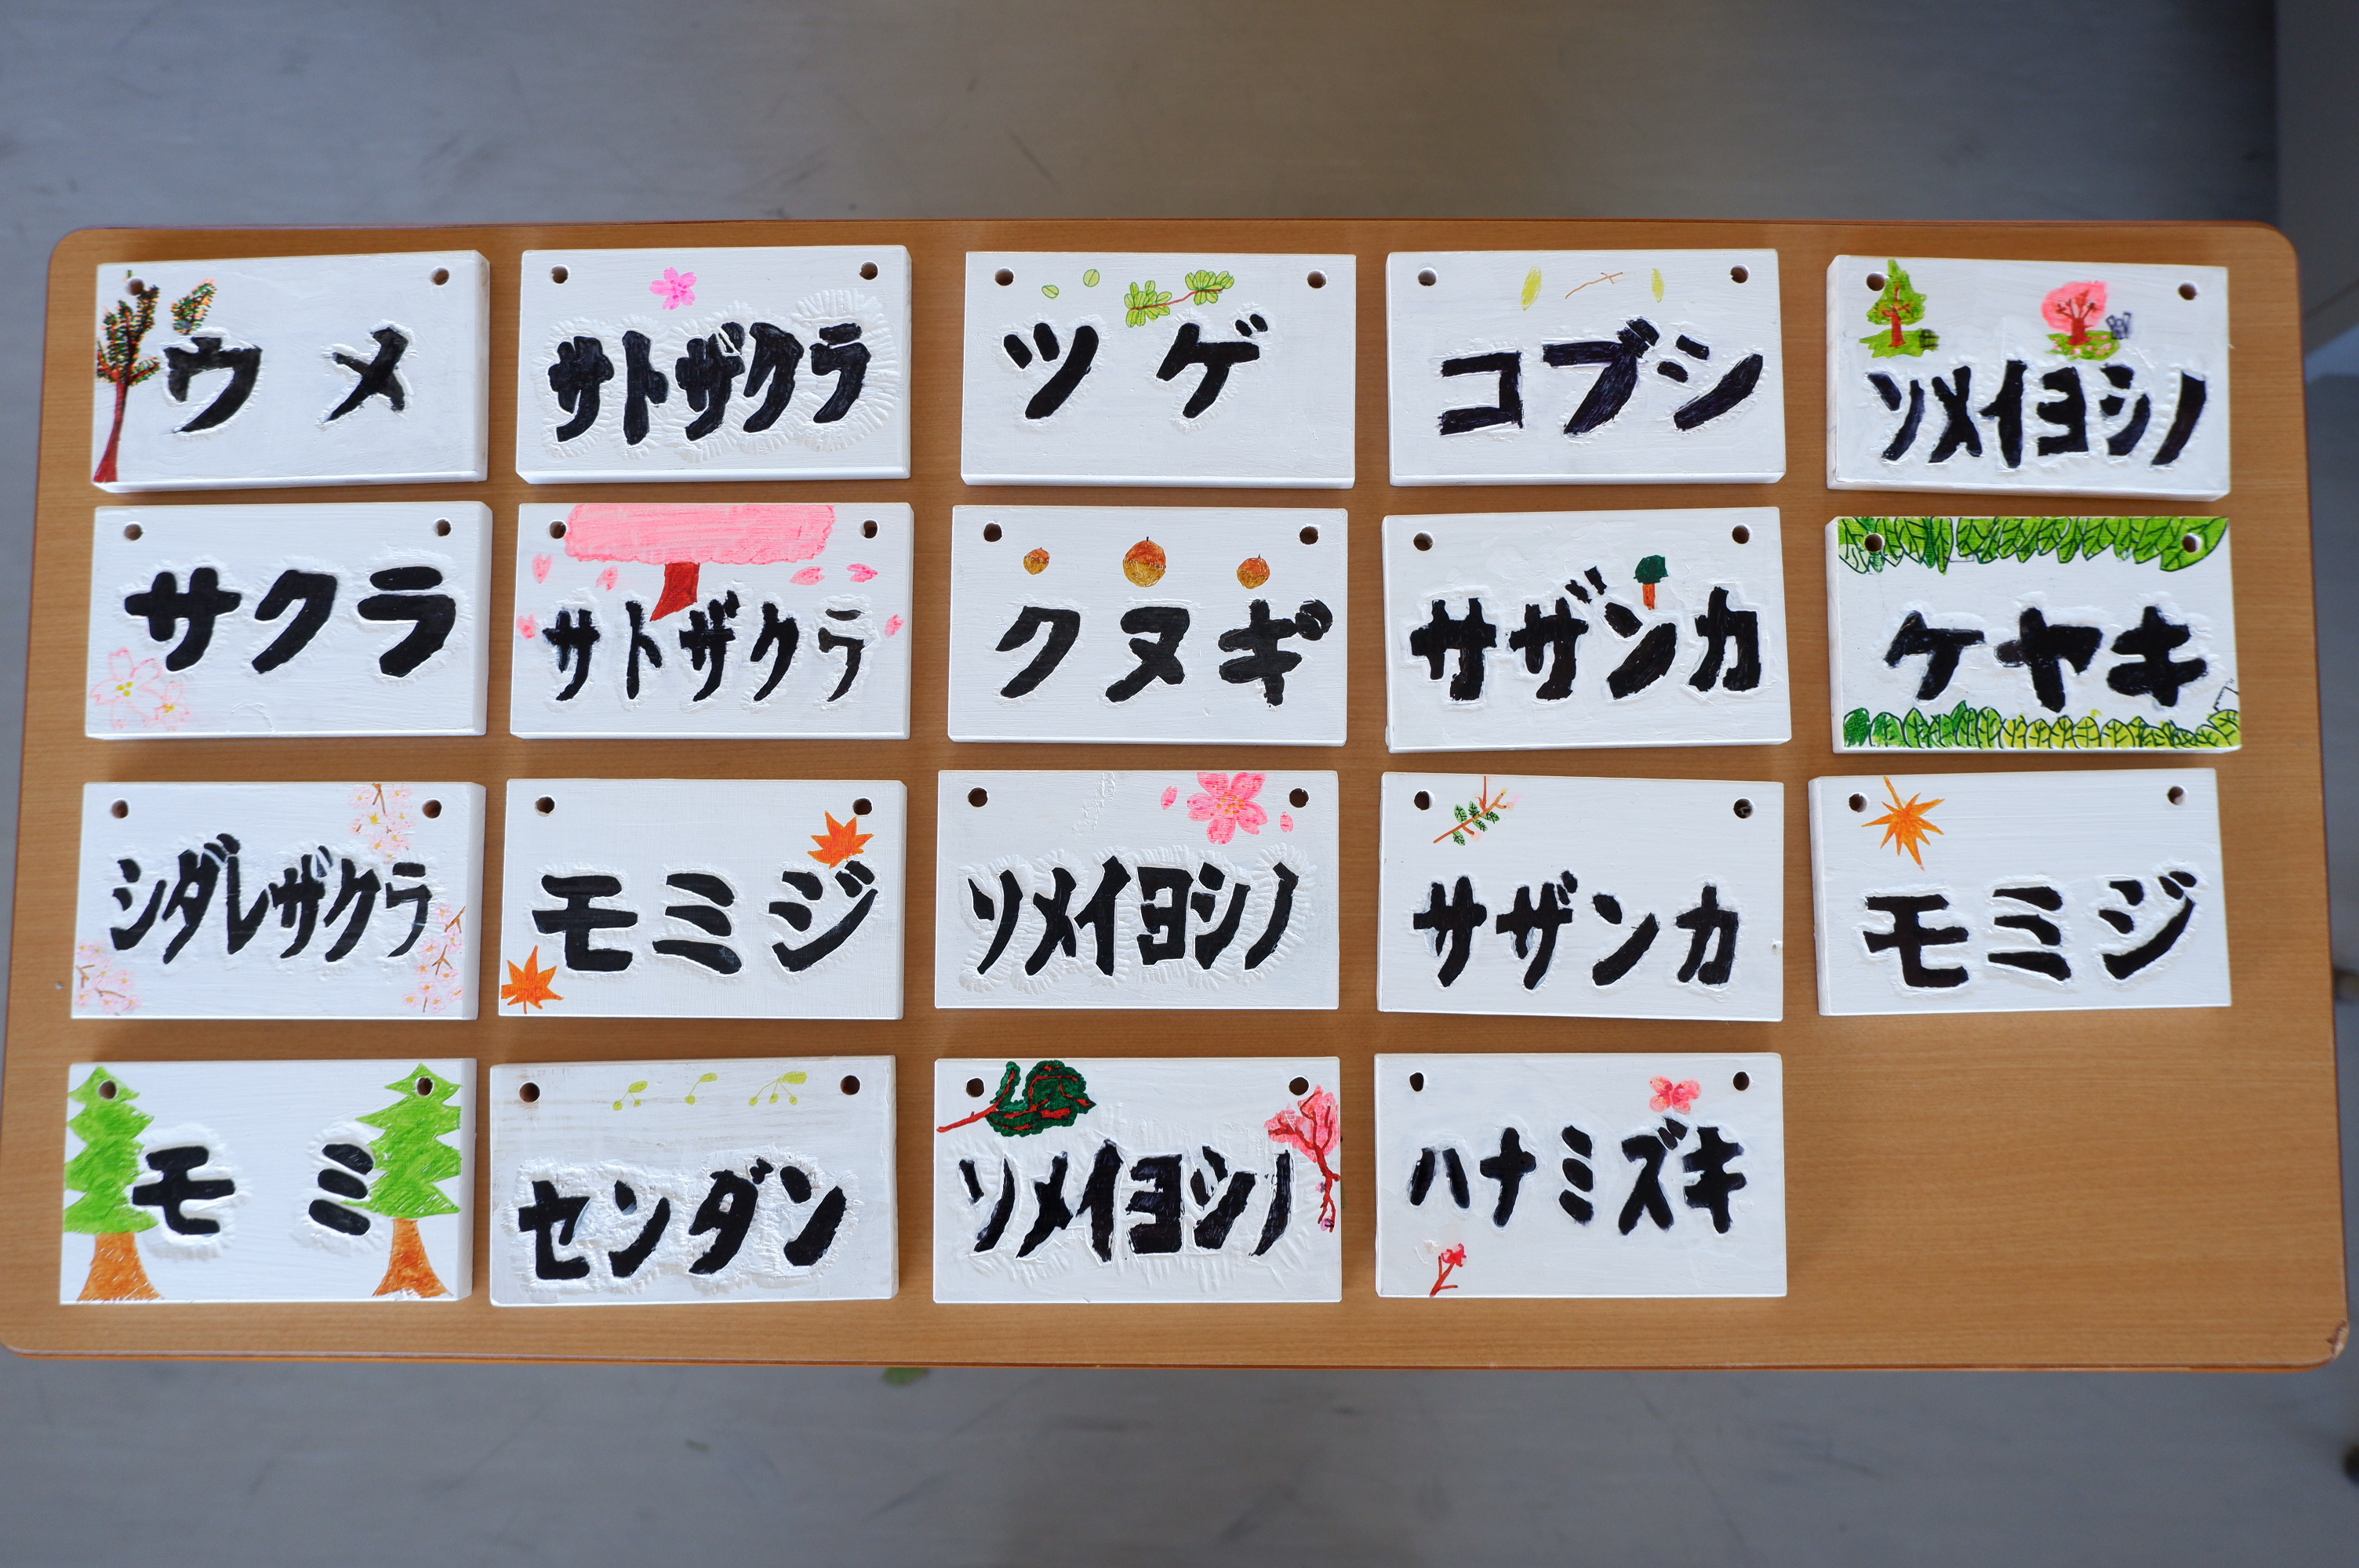 ウメ
サトザクラ
ツゲ
コブシ
ソメイヨシノ
サクラ
サトザクラ
クヌギ
サザンカ
ケヤキ
シダレザクラ
モミジ
ソメイヨシノ
サザンカ
モミジ
モミ
センダン
ソメイヨシノ
ハナミズキ